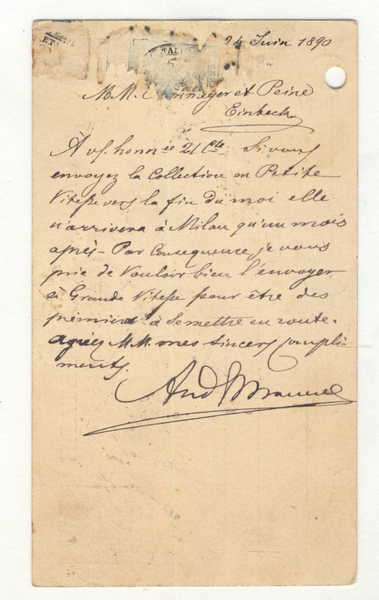 24 Juin 1890
M.M. et Peine
Einbeck
A vs. honn 21 Ct. Si vous
envoyez la Collection en Petite
Vitesse vers la fin du moi elle
n'arrivera à Milan qu'un mois
après. Par Consequence, je vous
prie de Vouloir bien l'envoyer
à Grande Vitesse pour être des
prémiers à se mettre en route.
agréez M.M. mes sincers compli
ments.